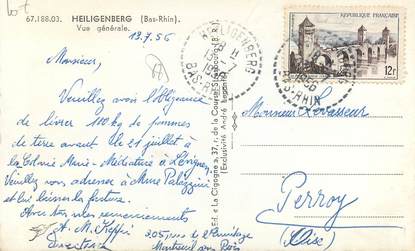 67.188.03. HEILIGENBERG (Bas-Rhin).
Vue générale.
13.7.56
Monsieur,
Veuillez avoir l'obligeance
de livrer 100 kg de pommes
de terre avant le 21 juillet à
la Colonie
Veuillez vous adresser à Mme Palazzini
et lui laisser la facture.
Avec nos remerciements
A. M.
Directeur
305 rue de l'Ermitage
Montreuil sous Bois
Edit. La Cigogne, 37, r. de la Course, Strasbourg (B. R.)
(Exclusivité André
HEILIGENBERG
BAS-RHIN
REPUBLIQUE FRANÇAISE
12f
BAS-RHIN
Monsieur Levasseur
Perroy
(Oise)